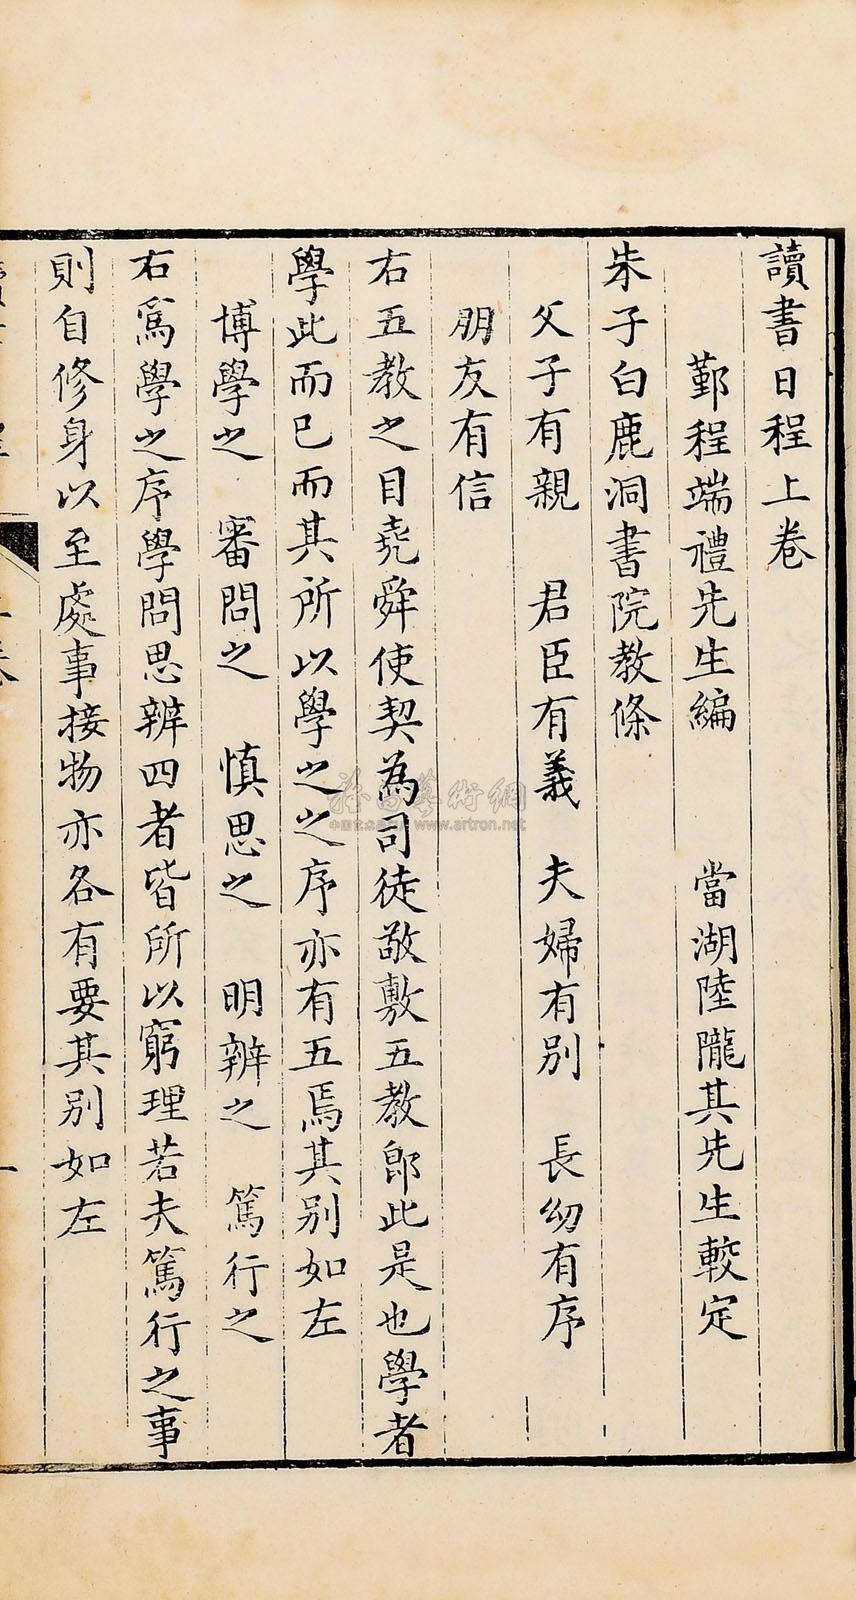 讀書日程上卷
鄞程端禮先生編 當湖陸隴其先生較定
朱子白鹿洞書院教條
父子有親 君臣有義 夫婦有別 長幼有序
朋友有信
右五教之目堯舜使契為司徒敬敷五教即此是也學者
學此而已而其所以學之之序亦有五焉其別如左
博學之 審問之 慎思之 明辨之 篤行之
右爲學之序學問思辨四者皆所以窮理若夫篤行之事
則自修身以至處事接物亦各有要其別如左
www.artron.net